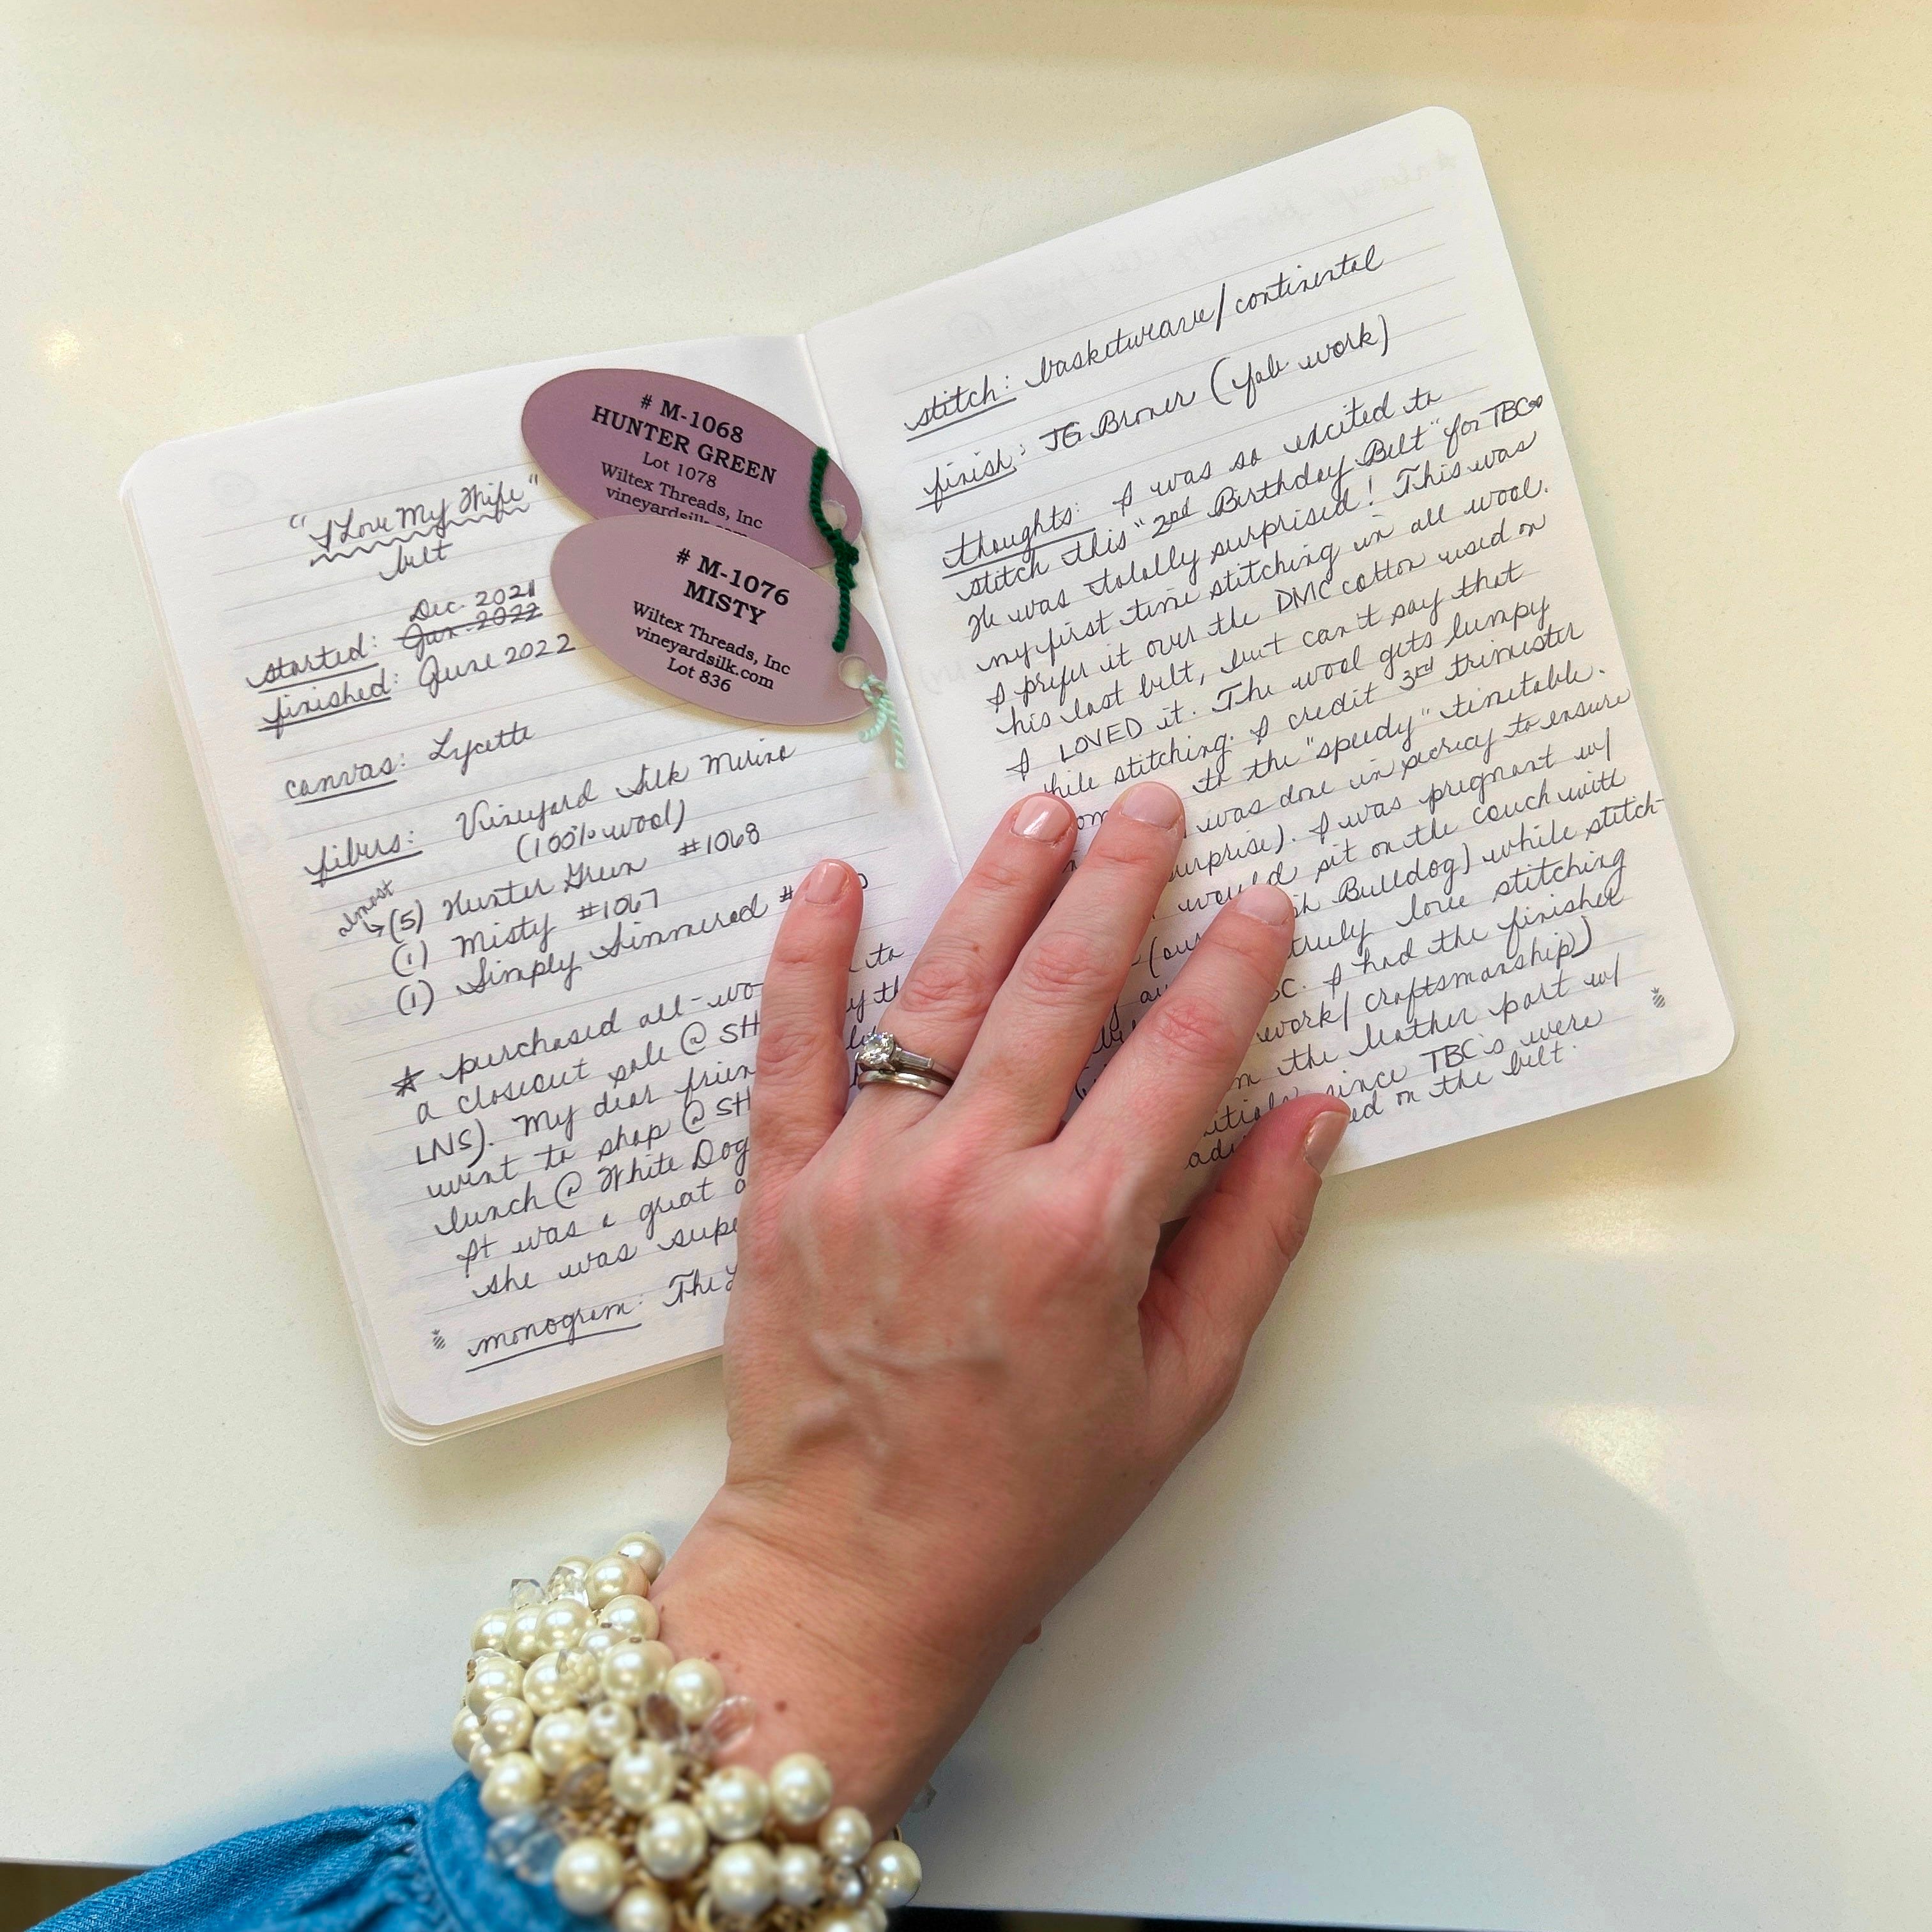 "I Love My Wife"
belt
started: Dec. 2021
Jan. 2022
finished: June 2022
canvas: Lycette
fibers: Vineyard Silk Merino
(100% wool)
almost
(5) Hunter Green #1068
(1) Misty #1067
(1) Simply Simmered #
* purchased all
a closeout sale @ SH
LNS). My dear
went to shop @ SH
lunch @ White Dog
It was a great
she was
monogram: The
# M-1068
HUNTER GREEN
Lot 1078
Wiltex Threads, Inc
# M-1076
MISTY
Wiltex Threads, Inc
vineyardsilk.com
Lot 836
stitch: basketweave/continental
finish: JG Broner (fab work)
thoughts: I was so excited to
stitch this "2nd Birthday Belt" for TBC
He was totally surprised! This was
my first time stitching in all wool.
I prefer it over the DMC cotton used on
his last belt, but can't say that
I LOVED it. The wool gets lumpy
while stitching. I credit 3rd trimester
to the "speedy" timetable.
was done in secrecy to ensure
surprise). I was pregnant w/
would sit on the couch with
(our Bulldog) while stitch-
truly love stitching
I had the finisher
work/craftsmanship)
the leather part w/
since TBC's were
on the belt.